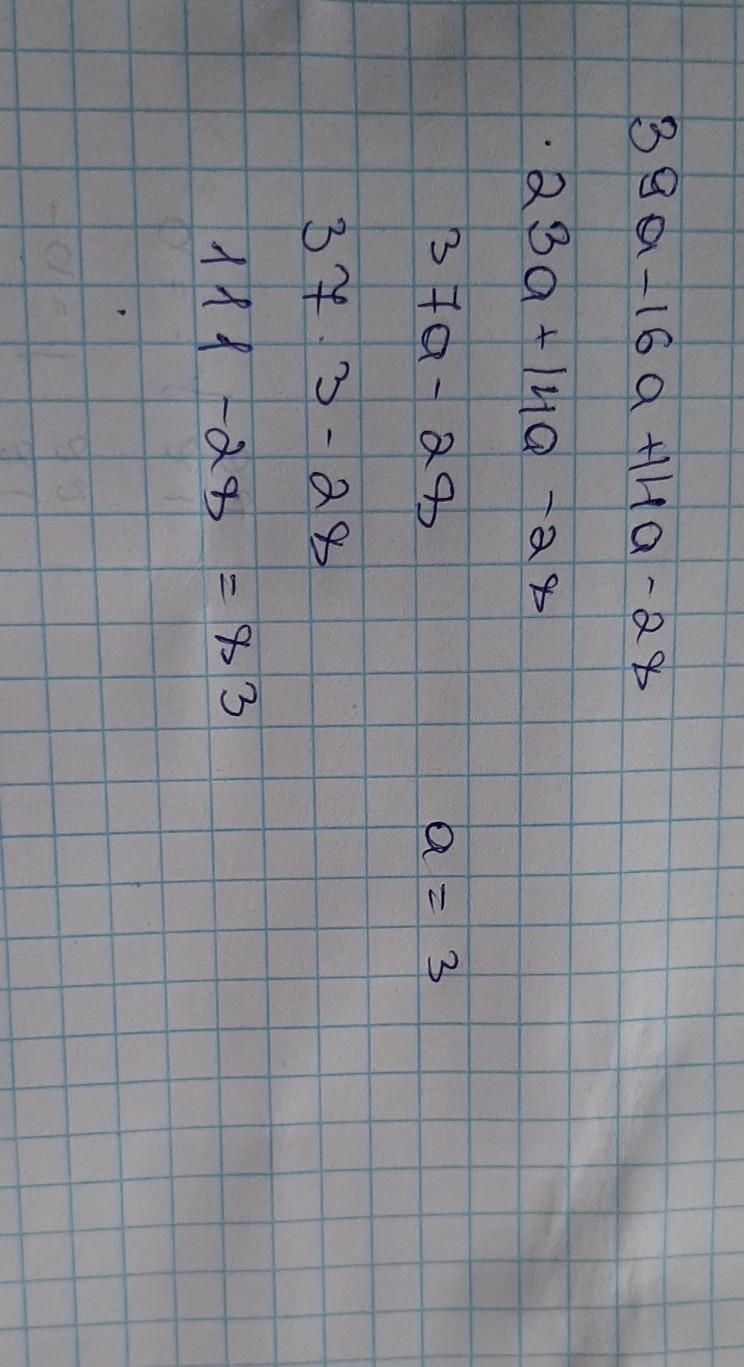 39a-16a+14a-28
23a+14a-28
37a-28
a=3
37·3-28
111-28=83